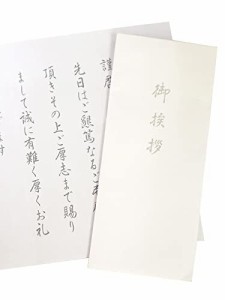 謹啓
先日はご懇篤なるご
頂きその上ご厚志まで賜り
まして誠に有難く厚くお礼
御挨拶